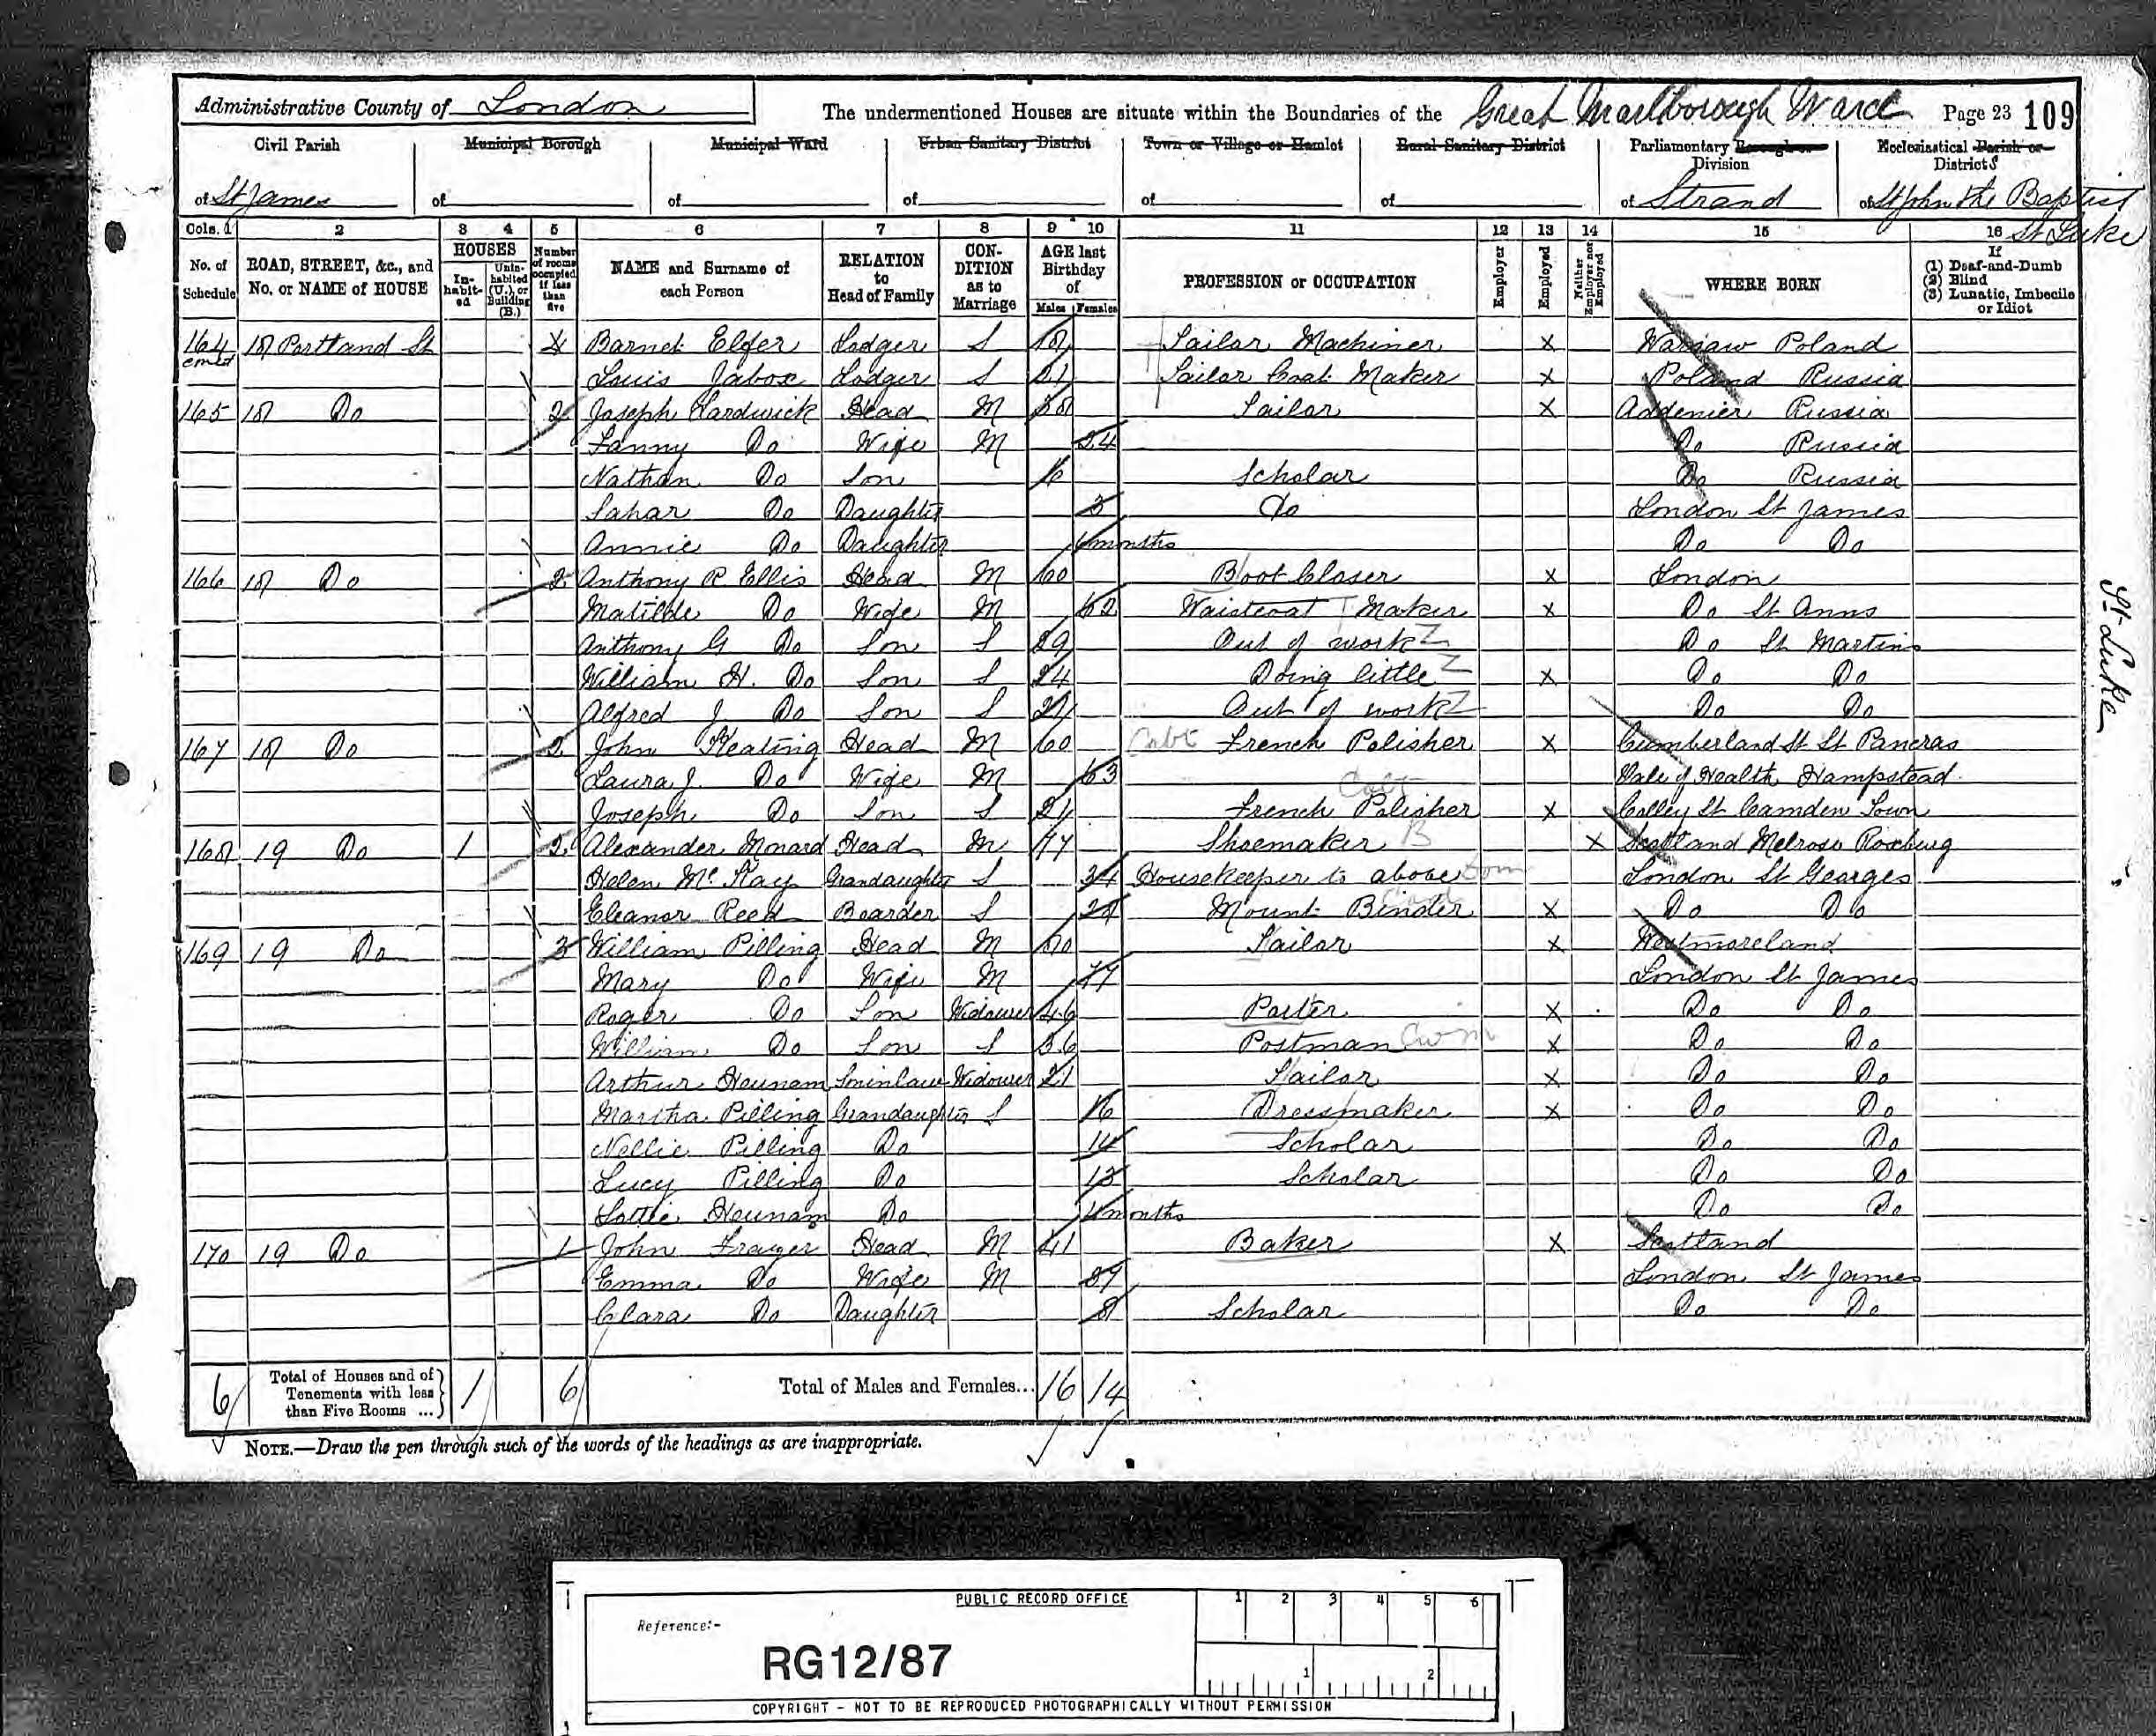 Administrative County of London The undermentioned Houses are situate within the Boundaries of the Great Marlborough Ward Page 23 109
Civil Parish Municipal Borough Municipal Ward Urban Sanitary District Town or Village or Hamlet Rural Sanitary District Parliamentary Borough or Division Ecclesiastical Parish or District
of St James of of of of of of Strand of St John the Baptist
St Luke
Cols. 1 2 3 4 5 6 7 8 9 10 11 12 13 14 15 16
No. of Schedule ROAD, STREET, &c., and No. or NAME of HOUSE HOUSES Inhabited Uninhabited (U.), or Building (B.) Number of rooms occupied if less than five NAME and Surname of each Person RELATION to Head of Family CONDITION as to Marriage AGE last Birthday of Males Females PROFESSION or OCCUPATION Employer Employed Neither Employer nor Employed WHERE BORN If (1) Deaf-and-Dumb (2) Blind (3) Lunatic, Imbecile or Idiot
164 contd 18 Portland St 4 Barnet Elger Lodger S 18 Tailor Machiner X Warsaw Poland
Louis Jabox Lodger S 21 Tailor Coat Maker X Poland Russia
165 18 Do 2 Joseph Hardwick Head M 38 Tailor X Russia
Fanny Do Wife M 24 Do Russia
Nathan Do Son 6 Scholar Do Russia
Sahar Do Daughter 3 Do London St James
Annie Do Daughter months Do Do
166 18 Do 2 Anthony R Ellis Head M 60 Boot Closer X London
Matilde Do Wife M 52 Waistcoat Maker X Do St Anns
Anthony G Do Son S 29 Out of work Do St Martins
William H. Do Son S 24 Doing little X Do Do
Alfred J Do Son S 21 Out of work Do Do
167 18 Do 2 John Keating Head M 60 French Polisher X Cumberland St St Pancras
Laura J. Do Wife M 53 Vale of Health Hampstead
Joseph Do Son S 21 French Polisher X St Camden Town
168 19 Do 1 2 Alexander Monard Head M 77 Shoemaker B X Scotland Melrose Roxburg
Helen McKay Grandaughter S 34 Housekeeper to above Dom London St Georges
Eleanor Reed Boarder S 28 Mount Binder X Do Do
169 19 Do 3 William Pilling Head M 70 Tailor X Westmoreland
Mary Do Wife M 77 London St James
Roger Do Son Widower 46 Porter X Do Do
William Do Son S 36 Postman X Do Do
Arthur Heunam Soninlaw Widower 21 Tailor X Do Do
Martha Pilling Grandaughter S 16 Dressmaker X Do Do
Nellie Pilling Do 14 Scholar Do Do
Lucy Pilling Do 13 Scholar Do Do
Lottie Heunam Do 4 months Do Do
170 19 Do 1 John Frazer Head M 41 Baker X Scotland
Emma Do Wife M 37 London St James
Clara Do Daughter 8 Scholar Do Do
6 Total of Houses and of Tenements with less than Five Rooms ... 1 6 Total of Males and Females... 16 14
NOTE.—Draw the pen through such of the words of the headings as are inappropriate.
St Luke
PUBLIC RECORD OFFICE
Reference:-
RG12/87
1 2 3 4 5 6
1 2
COPYRIGHT - NOT TO BE REPRODUCED PHOTOGRAPHICALLY WITHOUT PERMISSION